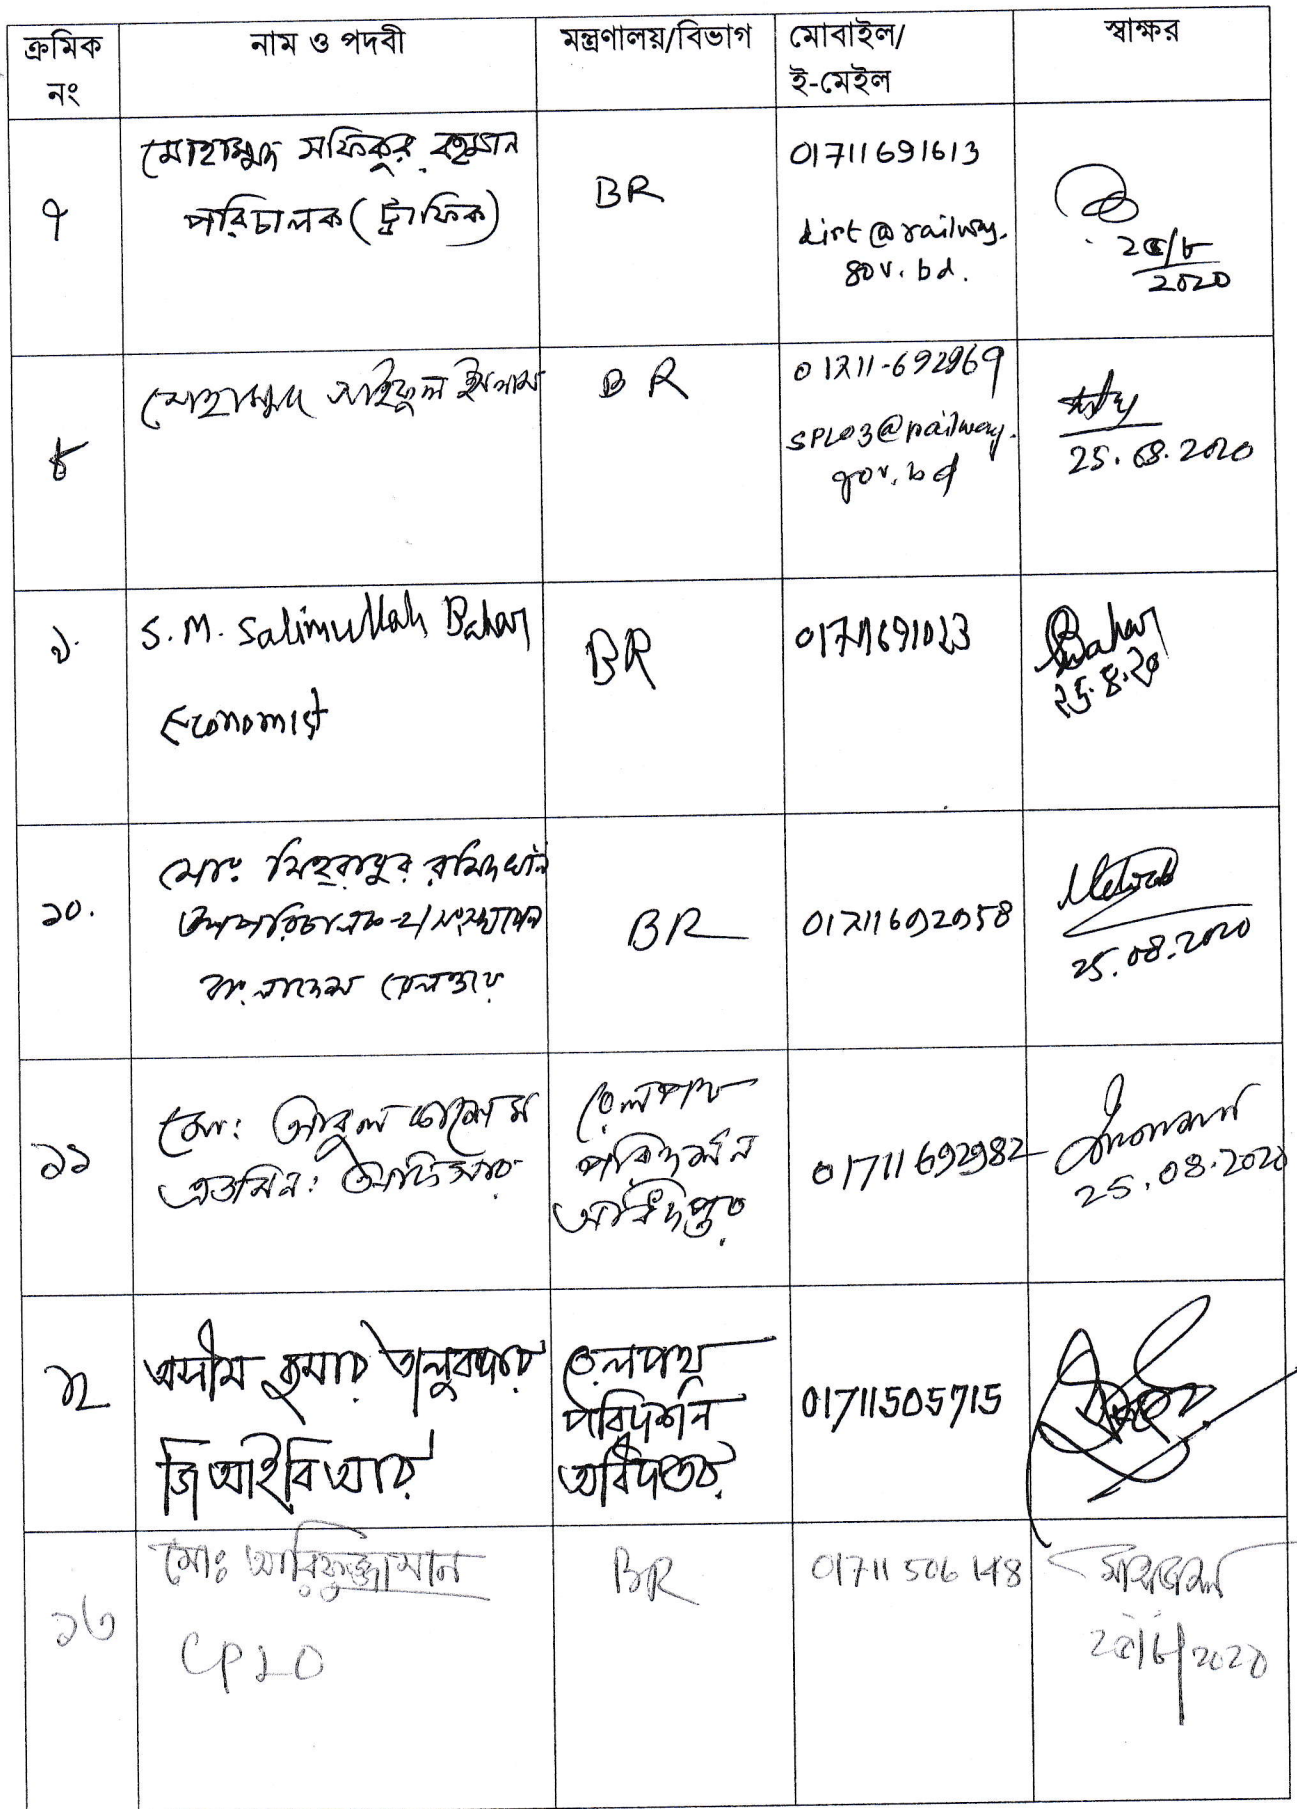 ক্রমিক নং
নাম ও পদবী
মন্ত্রণালয়/বিভাগ
মোবাইল/
ই-মেইল
স্বাক্ষর
৭
মোহাম্মদ সফিকুর রহমান
পরিচালক (ট্রাফিক)
BR
01711691613
dirt@railway.
gov.bd.
২৫/৮
2020
৮
মোহাম্মদ সাইফুল ইসলাম
BR
01711-692969
SPLO3@railway.
gov.bd
25.08.2020
৯.
S.M. Salimullah Bahar
Economist
BR
01711691023
Bahar
25.8.20
১০.
মোঃ মিহরাবুর রশিদ খাঁন
উপপরিচালক-২/সংস্থাপন
বাংলাদেশ রেলওয়ে
BR
01711692958
25.08.2020
১১
মো: আবুল কালাম
এডমিন: অফিসার
রেলপথ
পরিদর্শন
অধিদপ্তর
01711692982
25.08.2020
১২
অসীম কুমার তালুকদার
জিআইবিআর
রেলপথ
পরিদর্শন
অধিদপ্তর
01711505715
১৩
মোঃ আরিফুজ্জামান
CPLO
BR
01711506148
২৫/৮/2020